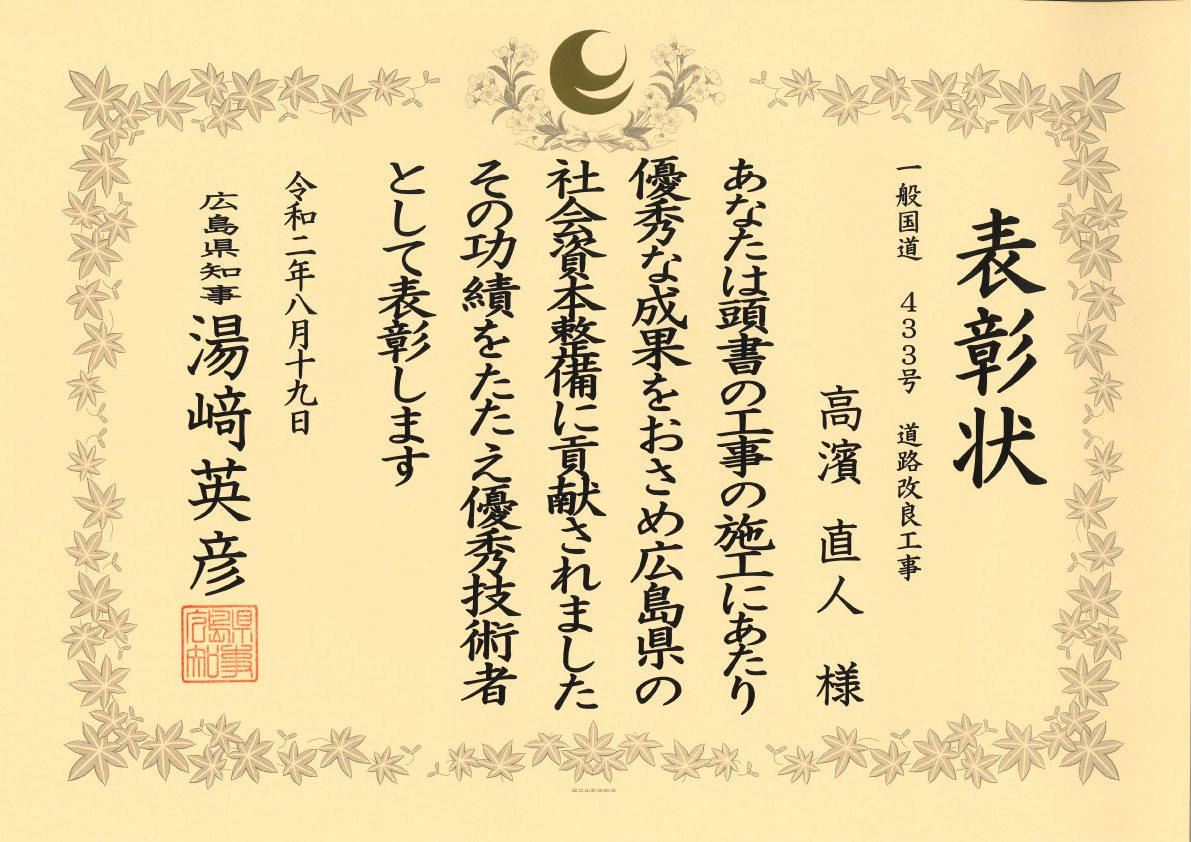 表彰状
一般国道 433号 道路改良工事
高濱 直人 様
あなたは頭書の工事の施工にあたり
優秀な成果をおさめ広島県の
社会資本整備に貢献されました
その功績をたたえ優秀技術者
として表彰します
令和二年八月十九日
広島県知事 湯﨑英彦
広島県知事